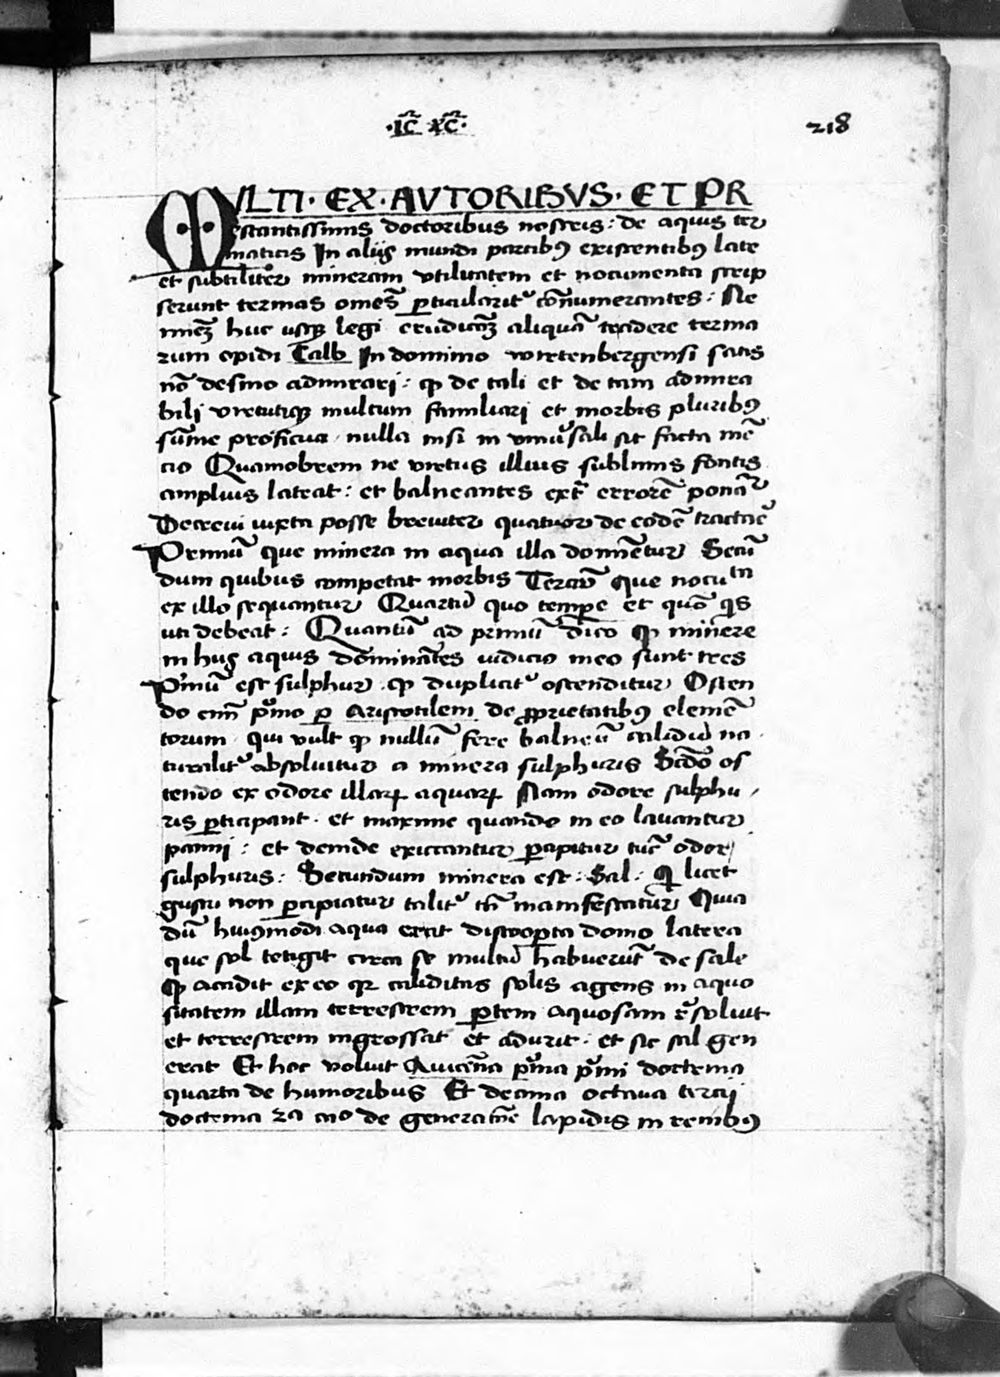 ·IC̃ XC̃·
218
MVLTI · EX · AVTORIBVS · ET PR
estantissimis doctoribus nostris : de aquis ter
maticis In aliis mundi partibꝰ existentibꝰ late
et subtiliter mineram vtilitatem et nocumenta scrip
serunt termas om̃es ꝑticularit᷑ cõnumerantes : Ne
minẽ huc usqꝫ legi aliquã tradere terma
rum opidi Calb In dominio wirtenbergensi satis
nõ desino admirari : ꝙ de tali et de tam admira
bili virtutiqꝫ multum familiari et morbis pluribꝰ
sũme proficua nulla nisi in vniũsali sit facta mẽ
cio Quamobrem ne virtus illius sublimis fontis
amplius lateat : et balneantes ext̃ errorẽ ponãt᷑
Decreui iuxta posse breuiter quatuor de eodẽ tractãe
Primũ que minera in aqua illa domiẽtur Secũ
dum quibus competat morbis Terciũ que nocu ta
ex illo sequantur Quartũ quo tempe et quõ qͥs
uti debeat : Quantũ ad primũ dico ꝙ minere
in huꝰ aquis domiñates iudicio meo sunt tres
Pͥmũ est sulphur · ꝙ duplicit᷑ ostenditur Osten
do eñ pͥmo ꝑ Aristotilem de ꝓprietatibꝰ elemẽ
torum · qui vult ꝙ nullũ fere balneũ calidũ na
turalit᷑ absoluitur a minera sulphuris Scdõ os
tendo ex odore illaꝝ aquaꝝ Nam odore sulphu
ris ꝑticipant · et maxime quando in eo lauantur
panni : et deinde exiccantur ꝑcipitur tũc odor
sulphuris : Secundum minera est : Sal : Qͥ licet
gustu non ꝑcipiatur talit᷑ tñ manifestatur Quia
dũ huiꝰmodi aqua erat discoopta domo latera
que sol tetigit circa se multũ habuerũt de sale
ꝙ accidit ex eo qꝛ caliditas solis agens in aquo
sitatem illam terrestrem ꝑtem aquosam r̃soluit
et terrestrem ingrossat et adurit · et sic sal gen
erat Et hoc voluit Auicẽna pͥma pͥmi doctrina
quarta de humoribus Et decima octaua tercij
doctrina 2a cão de generacõe lapidis in renibꝰ